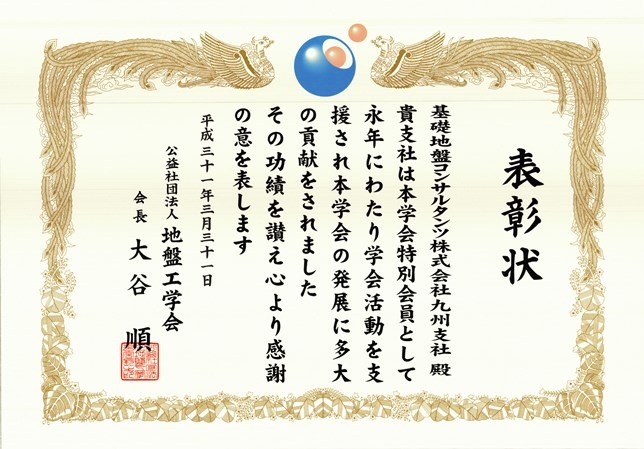 表彰状
基礎地盤コンサルタンツ株式会社九州支社 殿
貴支社は本学会特別会員として
永年にわたり学会活動を支
援され本学会の発展に多大
の貢献をされました
その功績を讃え心より感謝
の意を表します
平成三十一年三月三十一日
公益社団法人 地盤工学会
会長 大谷 順